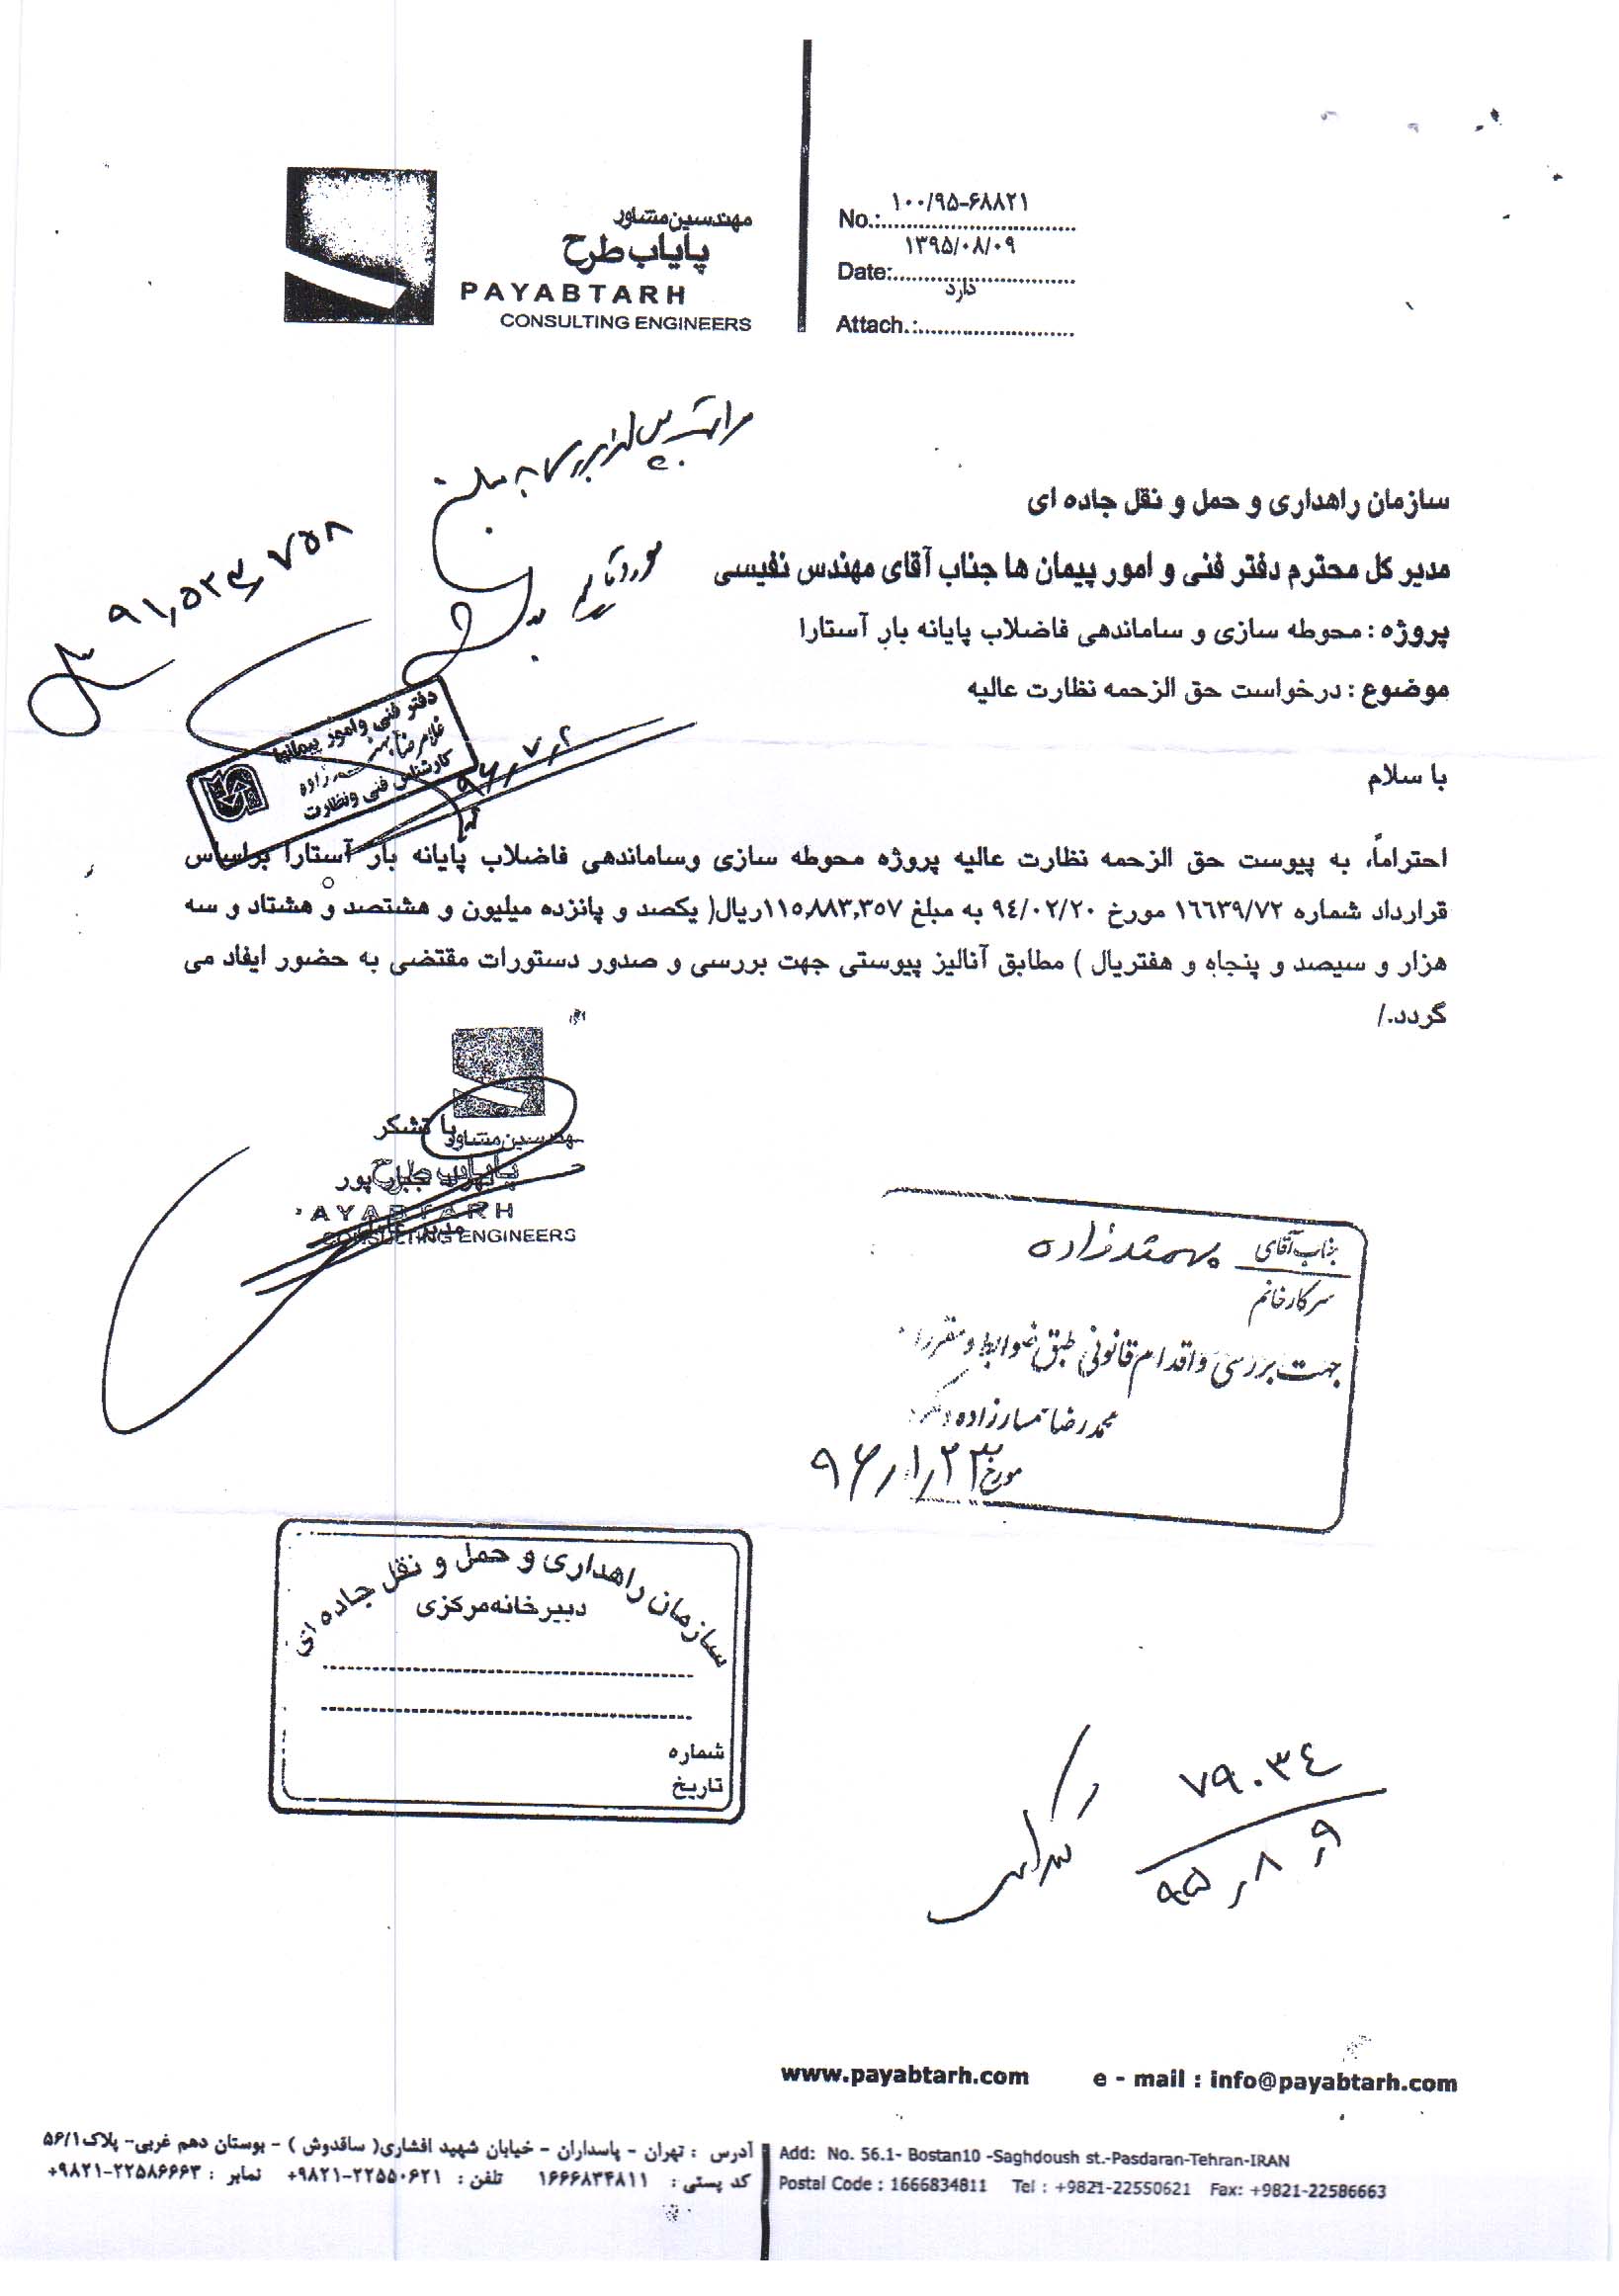 مهندسین مشاور
پایاب طرح
PAYABTARH
CONSULTING ENGINEERS
No.: ۱۰۰/۹۵-۶۸۸۲۱
Date: ۱۳۹۵/۰۸/۰۹
Attach.: دارد
مراتب پس از بررسی به مبلغ
۹۱,۵۲۳,۷۵۸ ریال
مورد تایید
دفتر فنی و امور پیمانها
کارشناس فنی ونظارت
۹۶,۷,۲
سازمان راهداری و حمل و نقل جاده ای
مدیر کل محترم دفتر فنی و امور پیمان ها جناب آقای مهندس نفیسی
پروژه : محوطه سازی و ساماندهی فاضلاب پایانه بار آستارا
موضوع : درخواست حق الزحمه نظارت عالیه
با سلام
احتراماً، به پیوست حق الزحمه نظارت عالیه پروژه محوطه سازی وساماندهی فاضلاب پایانه بار آستارا براساس
قرارداد شماره ۱۶۶۳۹/۷۲ مورخ ۹۴/۰۲/۲۰ به مبلغ ۱۱۵,۸۸۳,۳۵۷ریال( یکصد و پانزده میلیون و هشتصد و هشتاد و سه
هزار و سیصد و پنجاه و هفتریال ) مطابق آنالیز پیوستی جهت بررسی و صدور دستورات مقتضی به حضور ایفاد می
گردد./
با تشکر
مهندسین مشاور
پایاب طرح
PAYABTARH
CONSULTING ENGINEERS
جناب آقای بهمندزاده
سرکار خانم
جهت بررسی و اقدام قانونی طبق ضوابط و مقررات
محمدرضا
مورخ ۹۶,۱,۲۳
سازمان راهداری و حمل و نقل جاده ای
دبیرخانه مرکزی
شماره
تاریخ
۷۹۰۳۴
۹۵,۸,۹
www.payabtarh.com e - mail : info@payabtarh.com
آدرس : تهران - پاسداران - خیابان شهید افشاری( ساقدوش ) - بوستان دهم غربی- پلاک۵۶/۱
کد پستی : ۱۶۶۶۸۳۴۸۱۱ تلفن : ۲۲۵۵۰۶۲۱-۹۸۲۱+ نمابر : ۲۲۵۸۶۶۶۳-۹۸۲۱+
Add: No. 56.1- Bostan10 -Saghdoush st.-Pasdaran-Tehran-IRAN
Postal Code : 1666834811 Tel : +9821-22550621 Fax: +9821-22586663